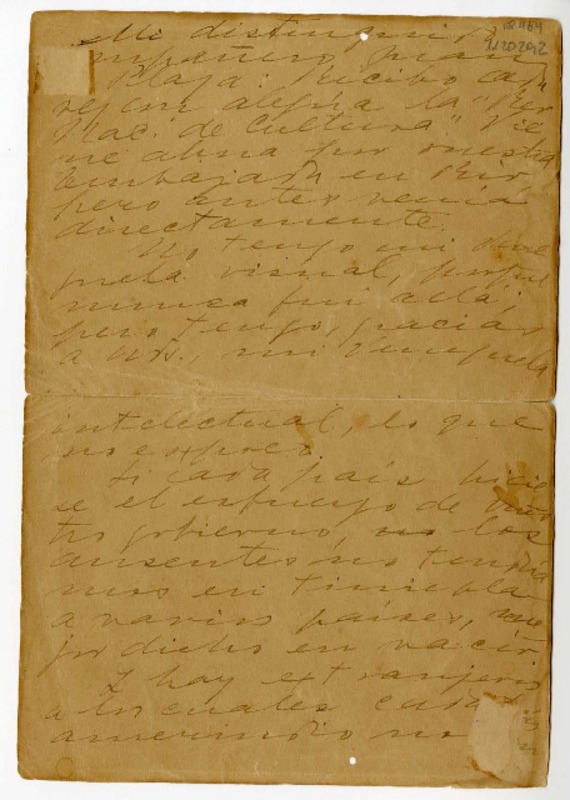 Mi distinguido
compañero Juan
Plaza: Recibo cada
vez con alegría la "Rev
Nac. de Cultura" Vie
ne ahora por nuestra
Embajada en Río,
pero antes venía
directamente.
No tengo mi Vene
zuela visual, porque
nunca fui allá;
pero tengo, gracias
a Uds., mi Venezuela
intelectual, lo que
no es poco.
Si cada país hicie
se el esfuerzo de vues
tro gobierno, los
ausentes no tendría
mos en tiniebla
a varios países, me
jor dicho en vacío
Y hay extranjeros
a los cuales cada
amerindio no